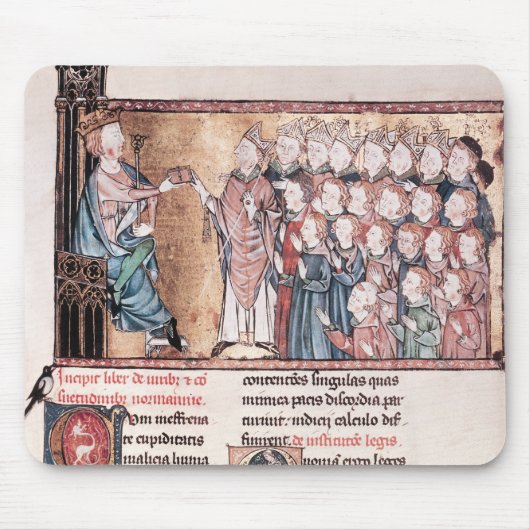 Incipit liber de iurib⁊ ⁊ cõ
suetudinib⁊ normannie.
Cum ineffrena
te cupiditatis
malicia huma
contencões singulas quas
inimica pacis discordia par
turiuit. iudicii calculo dif
finirent. de institucõe legis.
Quoniam ergo leges